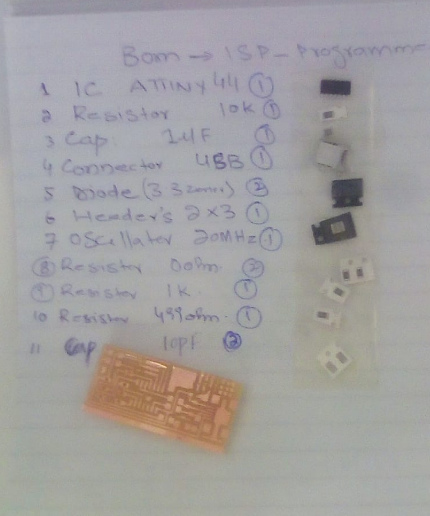 Bom → ISP - Programme
1 IC ATTINY44 ①
2 Resistor 10K ①
3 Cap 1uF ①
4 Connector USB ①
5 Diode (3.3zener) ②
6 Header's 2x3 ①
7 OScillater 20MHz ①
⑧ Resistor 0ohm ②
⑨ Resistor 1K ①
10 Resistor 499ohm ①
11 Cap 10pF ②